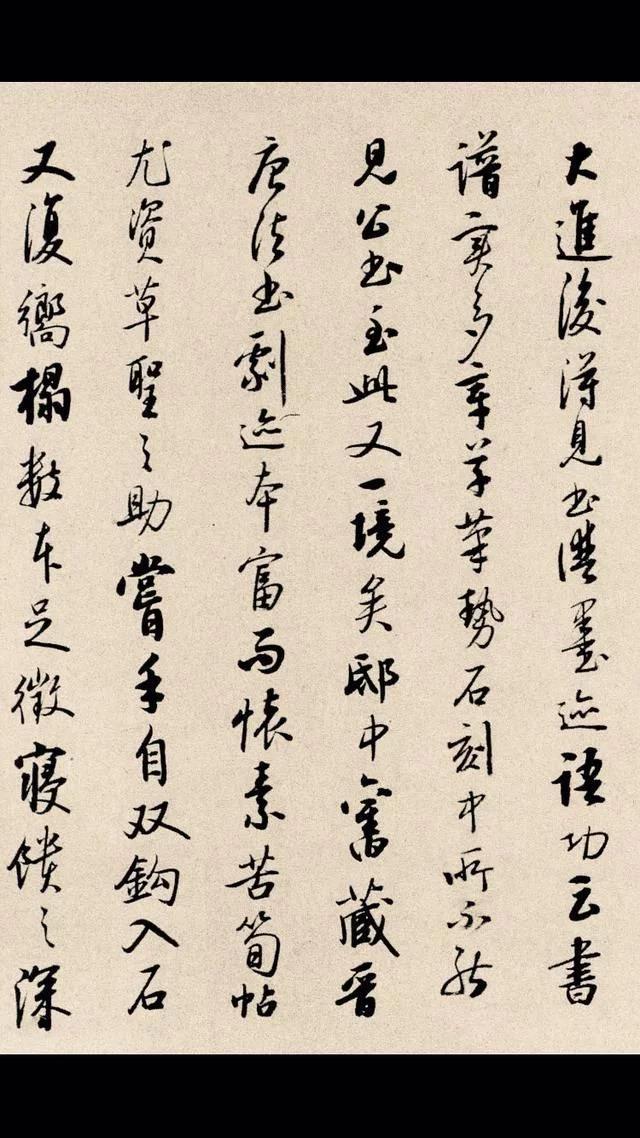 大進後得見書譜墨迹語功云書
譜實多章草筆勢石刻中所不能
見公書至此又一境矣邸中舊藏晉
唐法書劇迹本富而懷素苦筍帖
尤資草聖之助嘗手自双鈎入石
又復嚮搨數本足徵寢饋之深